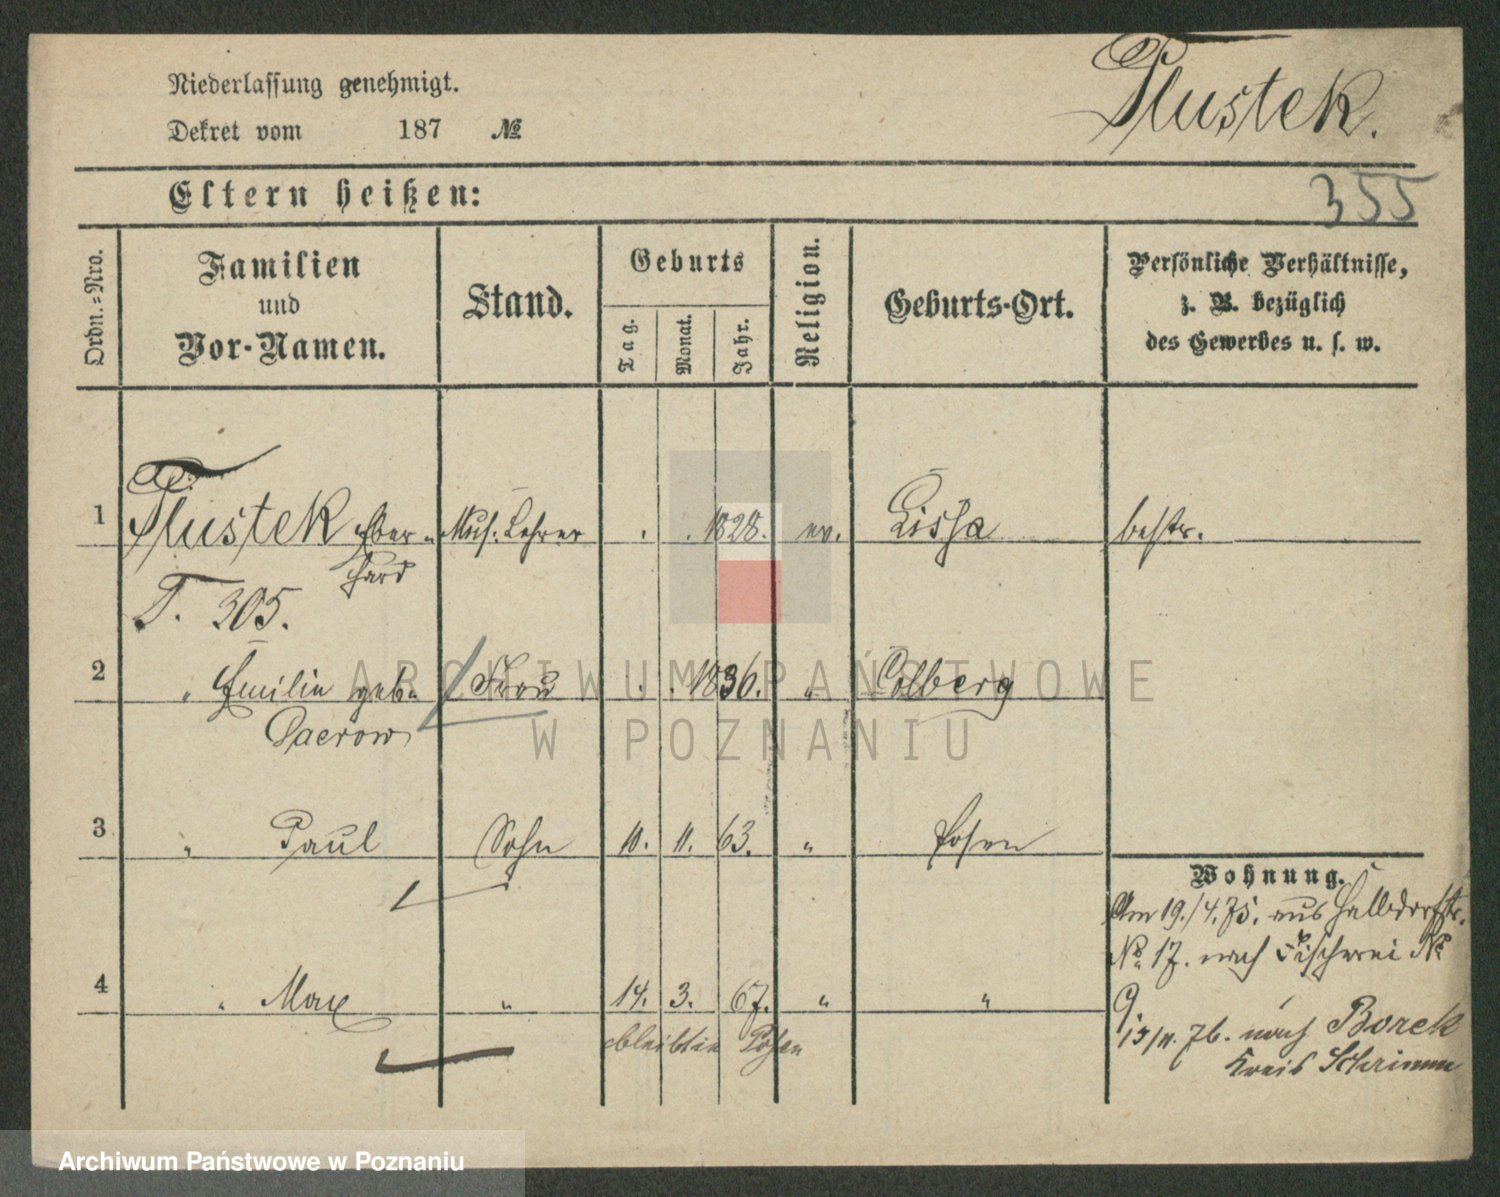 Niederlassung genehmigt.
Dekret vom 187 №
Flustek.
Eltern heißen:
355
Ordn.=Nro.
Familien
und
Vor-Namen.
Stand.
Geburts
Tag.
Monat.
Jahr.
Religion.
Geburts-Ort.
Persönliche Verhältnisse,
z. B. bezüglich
des Gewerbes u. s. w.
1 Flustek Eber- Mus: Lehrer . . 1828. ev. Lissa bestr.
hard
T. 305.
2 " Emilie geb. Frau . . 1836. " Colberg
Pacrow
3 " Paul Sohn 10. 11. 63. " Posen
Wohnung.
Am 19./4.75. aus Halbdorfstr.
No 17. nach Fischerei No
9.
4 " Max " 14. 3. 67. " "
bleibt in Posen
13/11. 76. nach Borek
Kreis Schrimm
ARCHIWUM PAŃSTWOWE
W POZNANIU
Archiwum Państwowe w Poznaniu